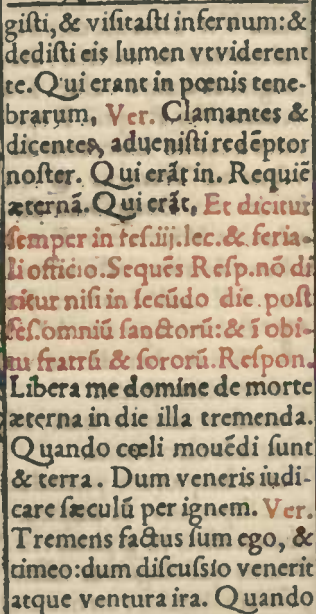 giſti,& viſitaſti infernum:&
dediſti eis lumen vtviderent
te.Qui erant in pœnis tene-
brarum, Ver. Clamantes &
dicentes, adueniſti redēptor
noſter. Qui erāt in. Requiē
æternā. Qui erāt, Et dicitur
ſemper in feſ.iij.lec.& feria-
li officio.Sequēs Reſp.nō di
citur niſi in ſecūdo die poſt
feſ.omniū ſanctorū:& ī obi-
tu fratrū & ſororū.Reſpon.
Libera me domine de morte
æterna in die illa tremenda.
Quando cœli mouēdi ſunt
& terra. Dum veneris iudi-
care ſæculū per ignem. Ver.
Tremens factus ſum ego, &
timeo:dum diſcuſsio venerit
atque ventura ira. Quando